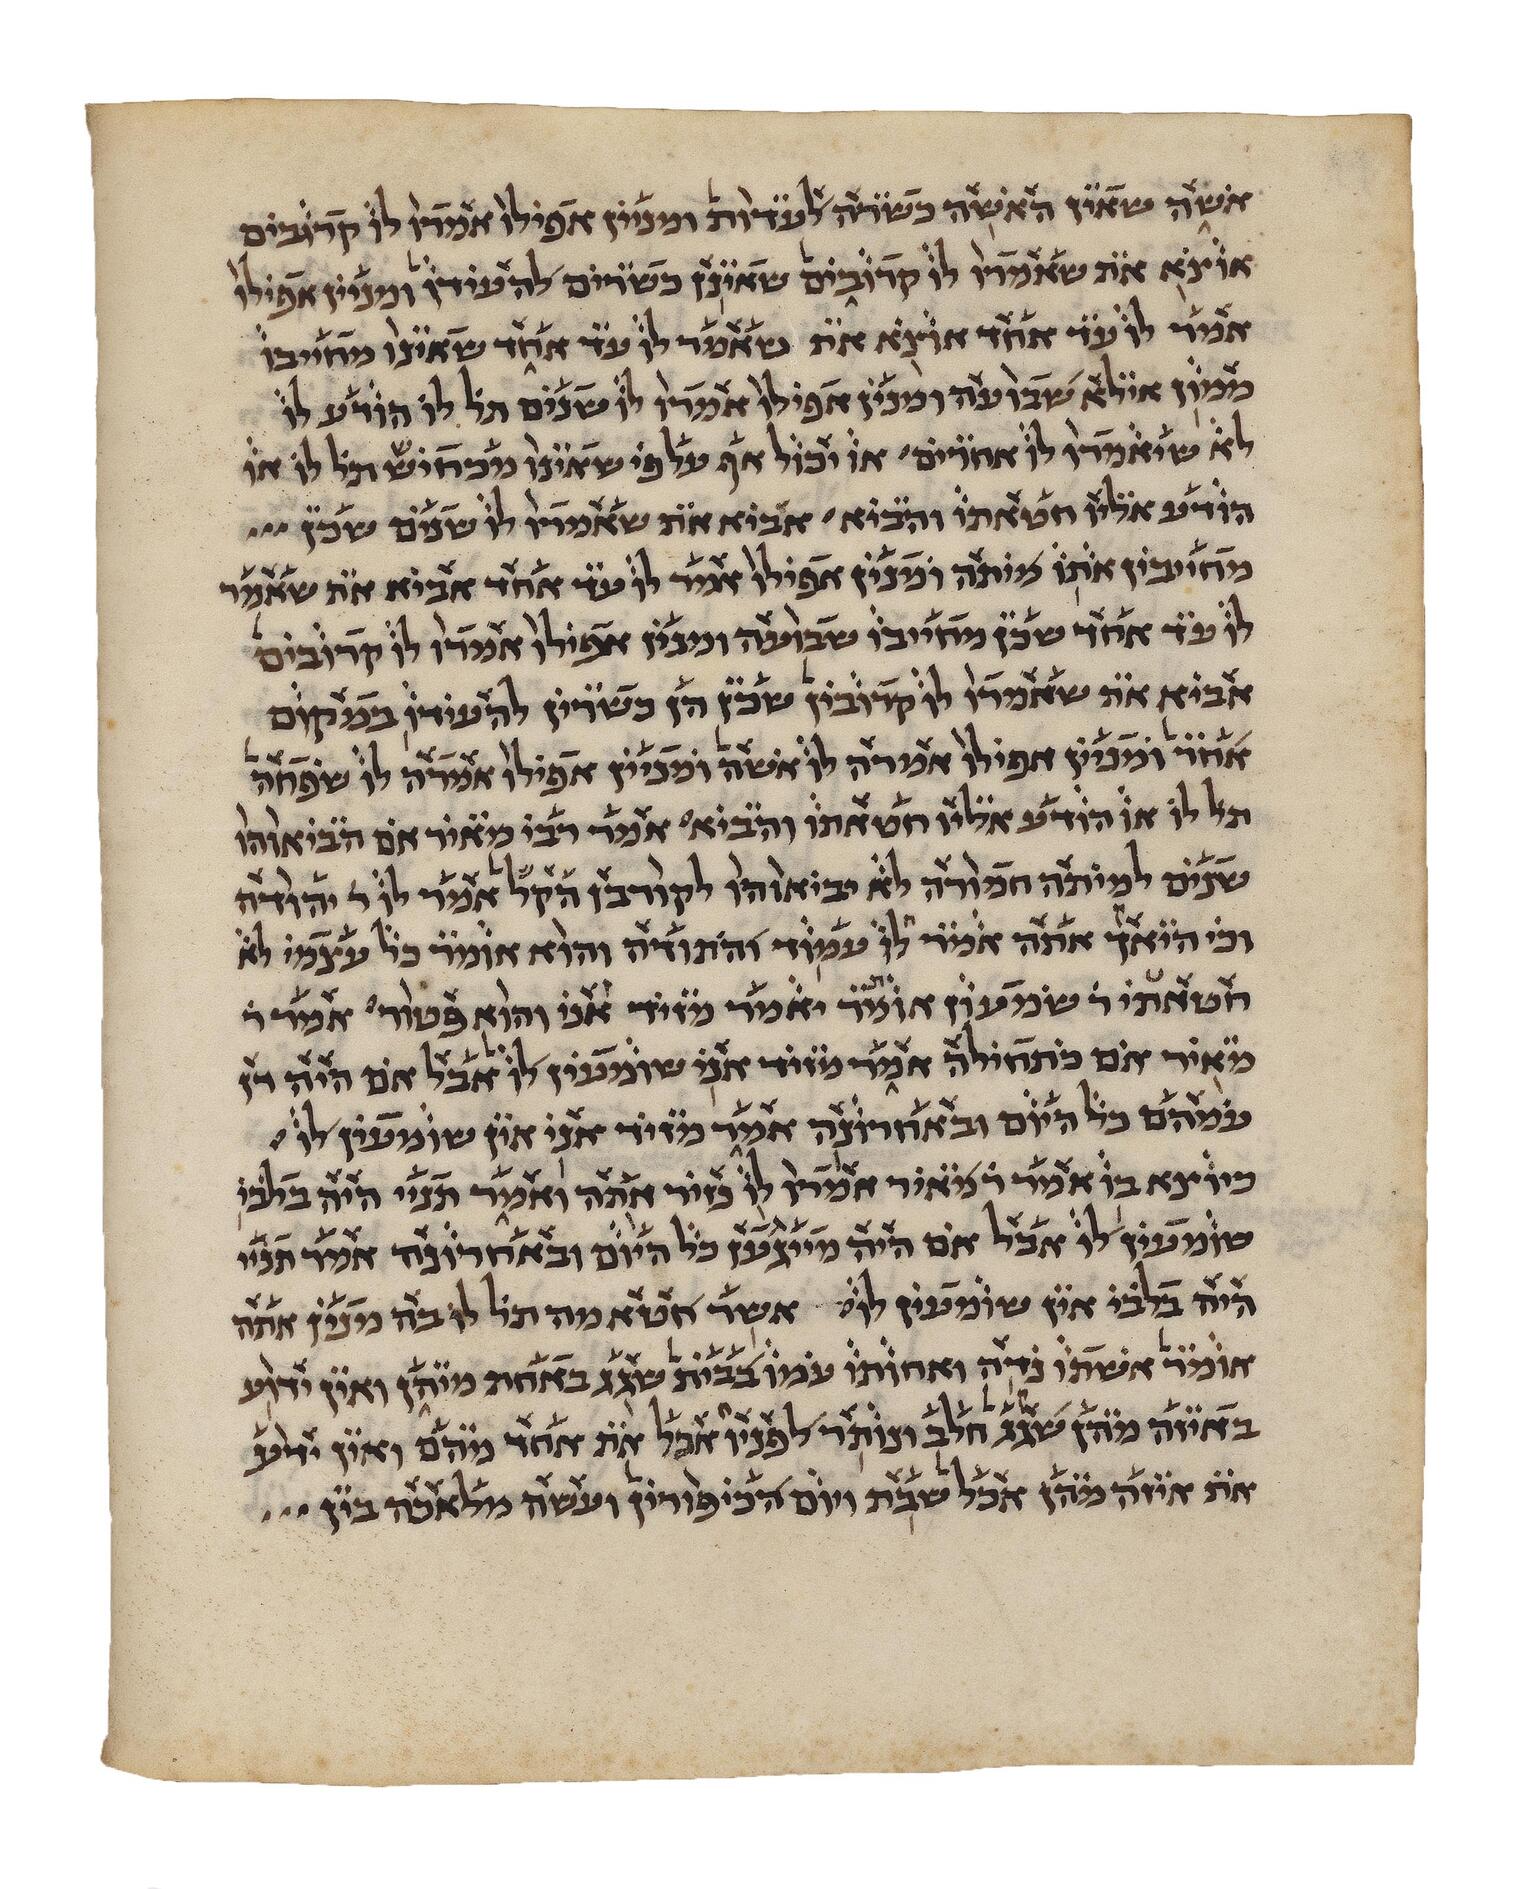 אשה שאין האשה כשרה לעדות ומניין אפילו אמרו לו קרובים
אוציא את שאמרו לו קרובים שאינן כשרים להעידן ומנין אפילו
אמר לו עד אחד אוציא את שאמר לו עד אחד שאינו מחייבו
ממון אילא שבועה ומנין אפילו אמרו לו שנים תל לו הודע לו
לא שיאמרו לו אחרים או יכול אף על פי שאינו מכחיש תל לו או
הודע אליו חטאתו והביא אביא את שאמרו לו שנים שכן
מחייבין אותו מיתה ומנין אפילו אמר לו עד אחד אביא את שאמר
לו עד אחד שכן מחייבו שבועה ומנין אפילו אמרו לו קרובים
אביא את שאמרו לו קרובין שכן הן כשרין להעידן במקום
אחר ומנין אפילו אמרה לו אשה ומניין אפילו אמרה לו שפחה
תל לו או הודע אליו חטאתו והביא אמר רבי מאיר אם הביאוהו
שנים למיתה חמורה לא יביאוהו לקורבן הקל אמר לו ר יהודה
וכי היאך אתה אמר לו עמוד והתודה והוא אומר כל עצמי לא
חטאתי ר שמעון אומר יאמר מזיד אני והוא פטור אמר ר
מאיר אם כתחילה אמר מזיד אני שומעין לו אבל אם היה דן
עמהם כל היום ובאחרונה אמר מזיד אני אין שומעין לו
כיוצא בו אמר ר מאיר אמרו לו נזיר אתה ואמר תניי היה בלבי
שומעין לו אבל אם היה מייגען כל היום ובאחרונה אמר תניי
היה בלבי אין שומעין לו אשר חטא מה תל לו בה מנין אתה
אומר אשתו נדה ואחותו עמו בבית שגג באחת מיהן ואין ידוע
באיזה מהן שגג חלב ונותר לפניו אכל את אחד מהם ואין ידע
את איזה מהן אכל שבת ויום הכיפורין ועשה מלאכה בין